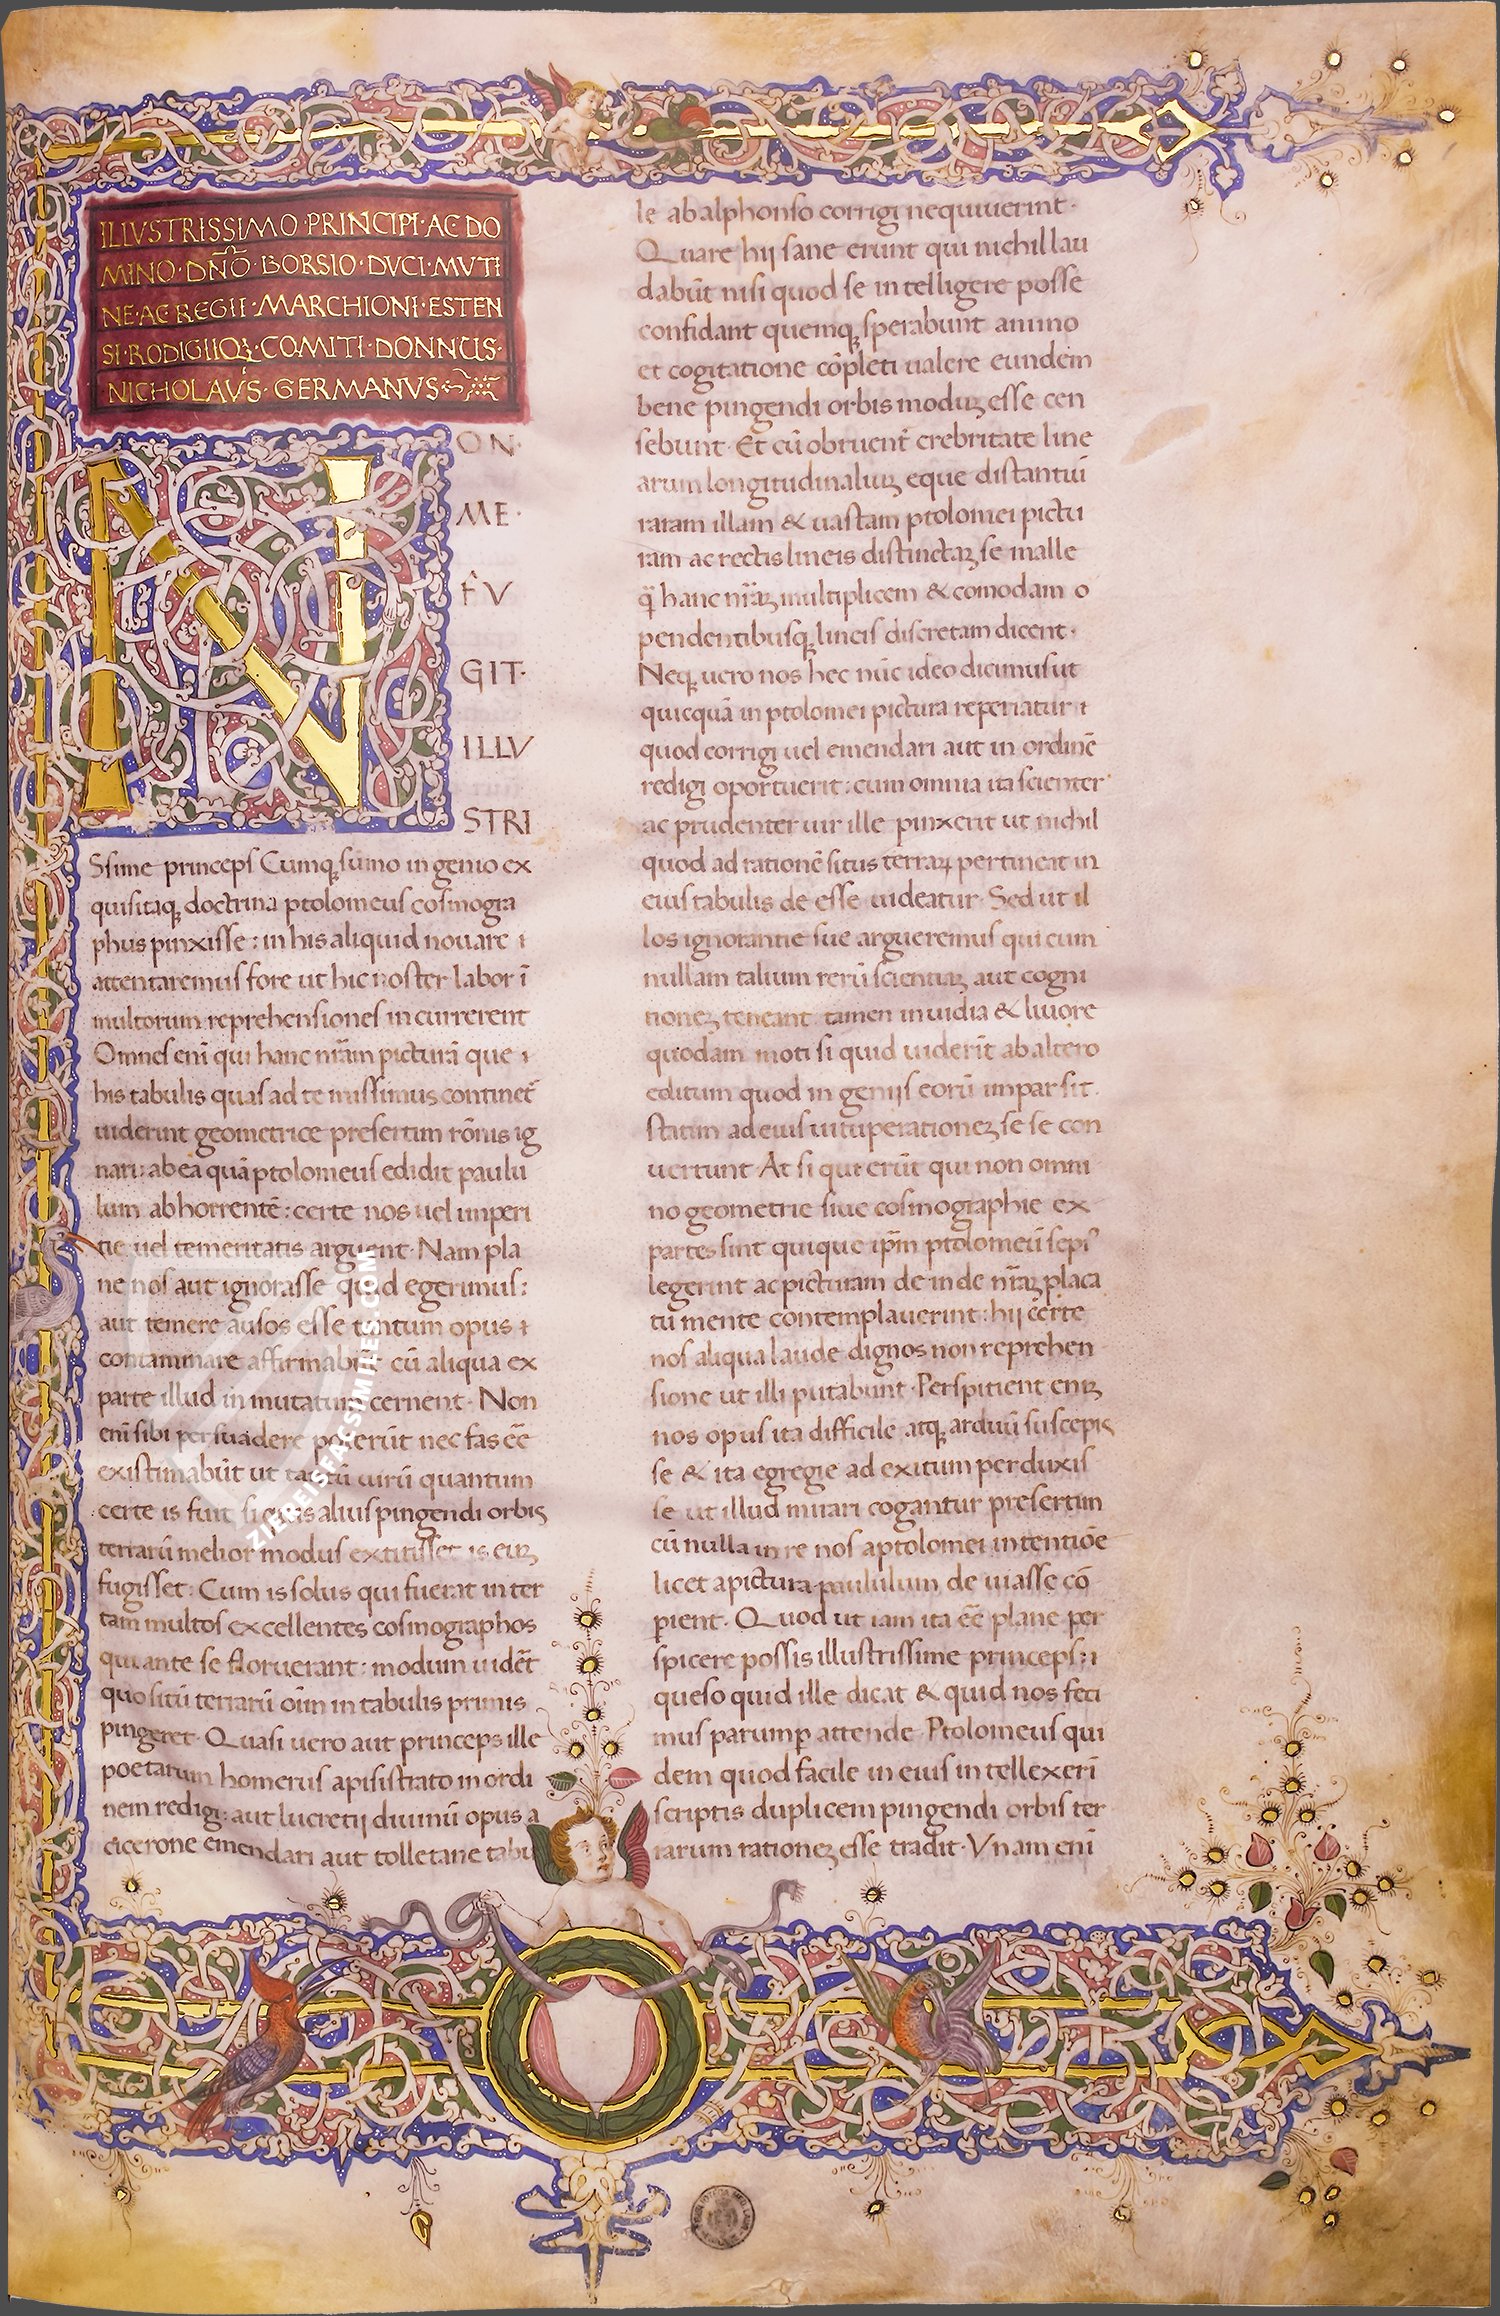 ILLVSTRISSIMO·PRINCIPI·AC DO
MINO·DN̄O·BORSIO·DVCI·MVTI
NE·AC REGII·MARCHIONI·ESTEN
SI·RODIGIIQȝ·COMITI·DONNUS·
NICHOLAVS·GERMANVS
NON·
ME·
FV
GIT·
ILLV
STRI
Ssime princeps Cumqȝ sūmo in genio ex
quisitaqȝ doctrina ptolomeus cosmogra
phus pinxisse: in his aliquid nouare ⁊
attentaremus fore ut hic noster labor ī
multorum reprehensiones in currerent
Omnes enī qui hanc nr̄am picturā que ⁊
his tabulis quas ad te missimus continet̄
uiderint geometrice presertim rōnis ig
nari: ab ea quā ptolomeus edidit paulu
lum abhorrentē: certe nos uel imperi
tie uel temeritatis arguent· Nam pla
ne nos aut ignorasse quid egerimus:
aut temere ausos esse tantum opus ⁊
contaminare affirmabūt cū aliqua ex
parte illud in mutatum cernent· Non
enī sibi persuadere poterūt nec fas eē̄
existimabūt ut tantū uirū quantum
certe is fuit si quis alius pingendi orbis
terrarū melior modus extitisset is eūȝ
fugisset: Cum is solus qui fuerat in ter
tam multos excellentes cosmographos
qui ante se floruerant: modum uidēt
quo sitū terrarū oīm in tabulis primis
pingeret· Quasi uero aut princeps ille
poetarum homerus apisistrato in ordi
nem redigi: aut lucretij diuinū opus a
cicerone emendari aut tolletane tabu
le ab alphonso corrigi nequiuerint·
Quare hij sane erunt qui nichil lau
dabūt nisi quod se in telligere posse
confidant quemqȝ sperabunt animo
et cogitatione cōpleti ualere eundem
bene pingendi orbis modūȝ esse cen
sebunt· Et cū obruent̄ crebritate line
arum longitudinaliūȝ eque distantiū
raram illam & uastam ptolomei pictu
ram ac rectis lineis distinctaȝ se malle
q̄ hanc nr̄aȝ multiplicem & comodam o
pendentibusqȝ lineis discretam dicent·
Neqȝ uero nos hec nūc ideo dicimus ut
quicquā in ptolomei pictura reperiatur ⁊
quod corrigi uel emendari aut in ordinē
redigi oportuerit: cum omnia ita scienter
ac prudenter uir ille pinxerit ut nichil
quod ad rationē situs terraꝝ pertineat in
eius tabulis de esse uideatur· Sed ut il
los ignorantie sue argueremus qui cum
nullam talium rerū scientiaȝ aut cogni
tioneȝ teneant tamen inuidia & liuore
quodam moti si quid uiderīt ab altero
editum quod in genijs eorū impar sit·
statim ad eius uituperationeȝ se se con
uertunt· At si qui erūt qui non omni
no geometrie siue cosmographie ex
partes sint quique ip̄m ptolomeū sepi⁹
legerint ac picturam de in de nr̄aȝ placa
tū mente contemplauerint: hij certe
nos aliqua laude dignos non reprehen
sione ut illi putabunt· Perspitient eniȝ
nos opus ita difficile atqȝ arduū suscepis
se & ita egregie ad exitum perduxis
se ut illud mirari cogantur presertim
cū nulla in re nos a ptolomei intentiōe
licet a pictura paululum de uiasse cō
pient· Quod ut iam ita eē̄ plane per
spicere possis illustrissime princeps: ⁊
queso quid ille dicat & quid nos feci
mus parump̄ attende· Ptolomeus qui
dem quod facile in eius in tellexeri
scriptis duplicem pingendi orbis ter
rarum rationeȝ esse tradit· Vnam enī
ZIEREISFACSIMILES.COM